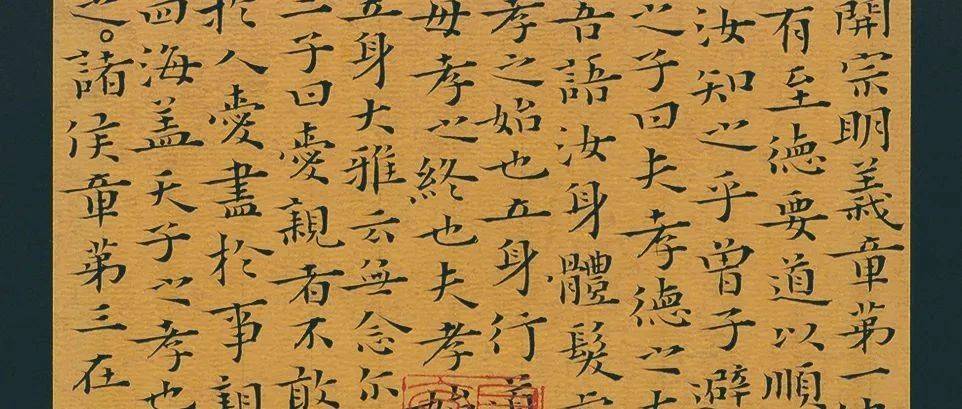 開宗明義章第一
有至德要道以順
汝知之乎曾子避
之子曰夫孝德之
吾語汝身體髮
孝之始也立身行道
母孝之終也夫孝始
立身大雅云無念尔
二子曰愛親者不敢
於人愛盡於事親
四海盖天子之孝也
之。諸侯章第三在